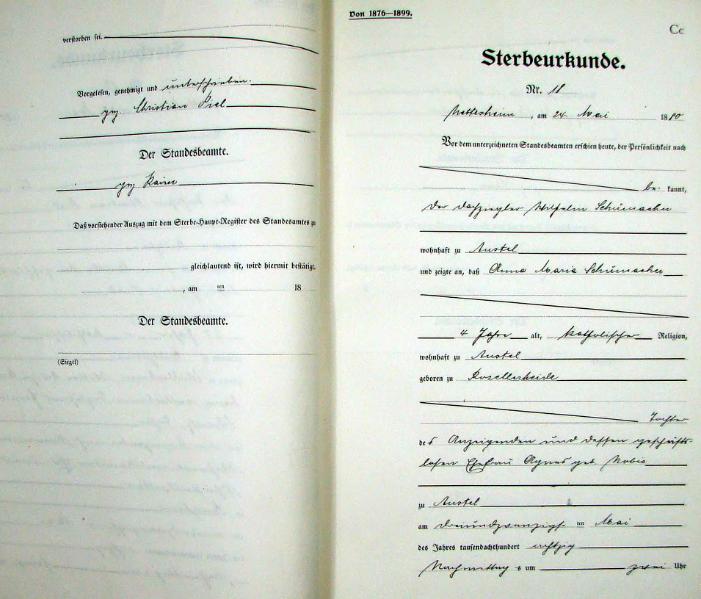 verstorben sei.
Vorgelesen, genehmigt und unterschrieben.
gez Christian Piel
Der Standesbeamte.
gez
Daß vorstehender Auszug mit dem Sterbe-Haupt-Register des Standesamtes zu
gleichlautend ist, wird hiermit bestätigt.
, am ten 18
Der Standesbeamte.
(Siegel)
Von 1876—1899.
Cc
Sterbeurkunde.
Nr. 18
Nettesheim, am 24. Mai 1880
Vor dem unterzeichneten Standesbeamten erschien heute, der Persönlichkeit nach
be- kannt,
der Dachziegler Wilhelm Schumacher
wohnhaft zu Anstel
und zeigte an, daß Anna Maria Schumacher
4 Jahre alt, katholischer Religion,
wohnhaft zu Anstel
geboren zu Rosellerheide
Tochter
des Anzeigenden und dessen geschäfts-
losen Ehefrau Agnes geb
zu Anstel
am dreiundzwanzigsten Mai
des Jahres tausendachthundert achtzig
Nachmittags um zwei Uhr